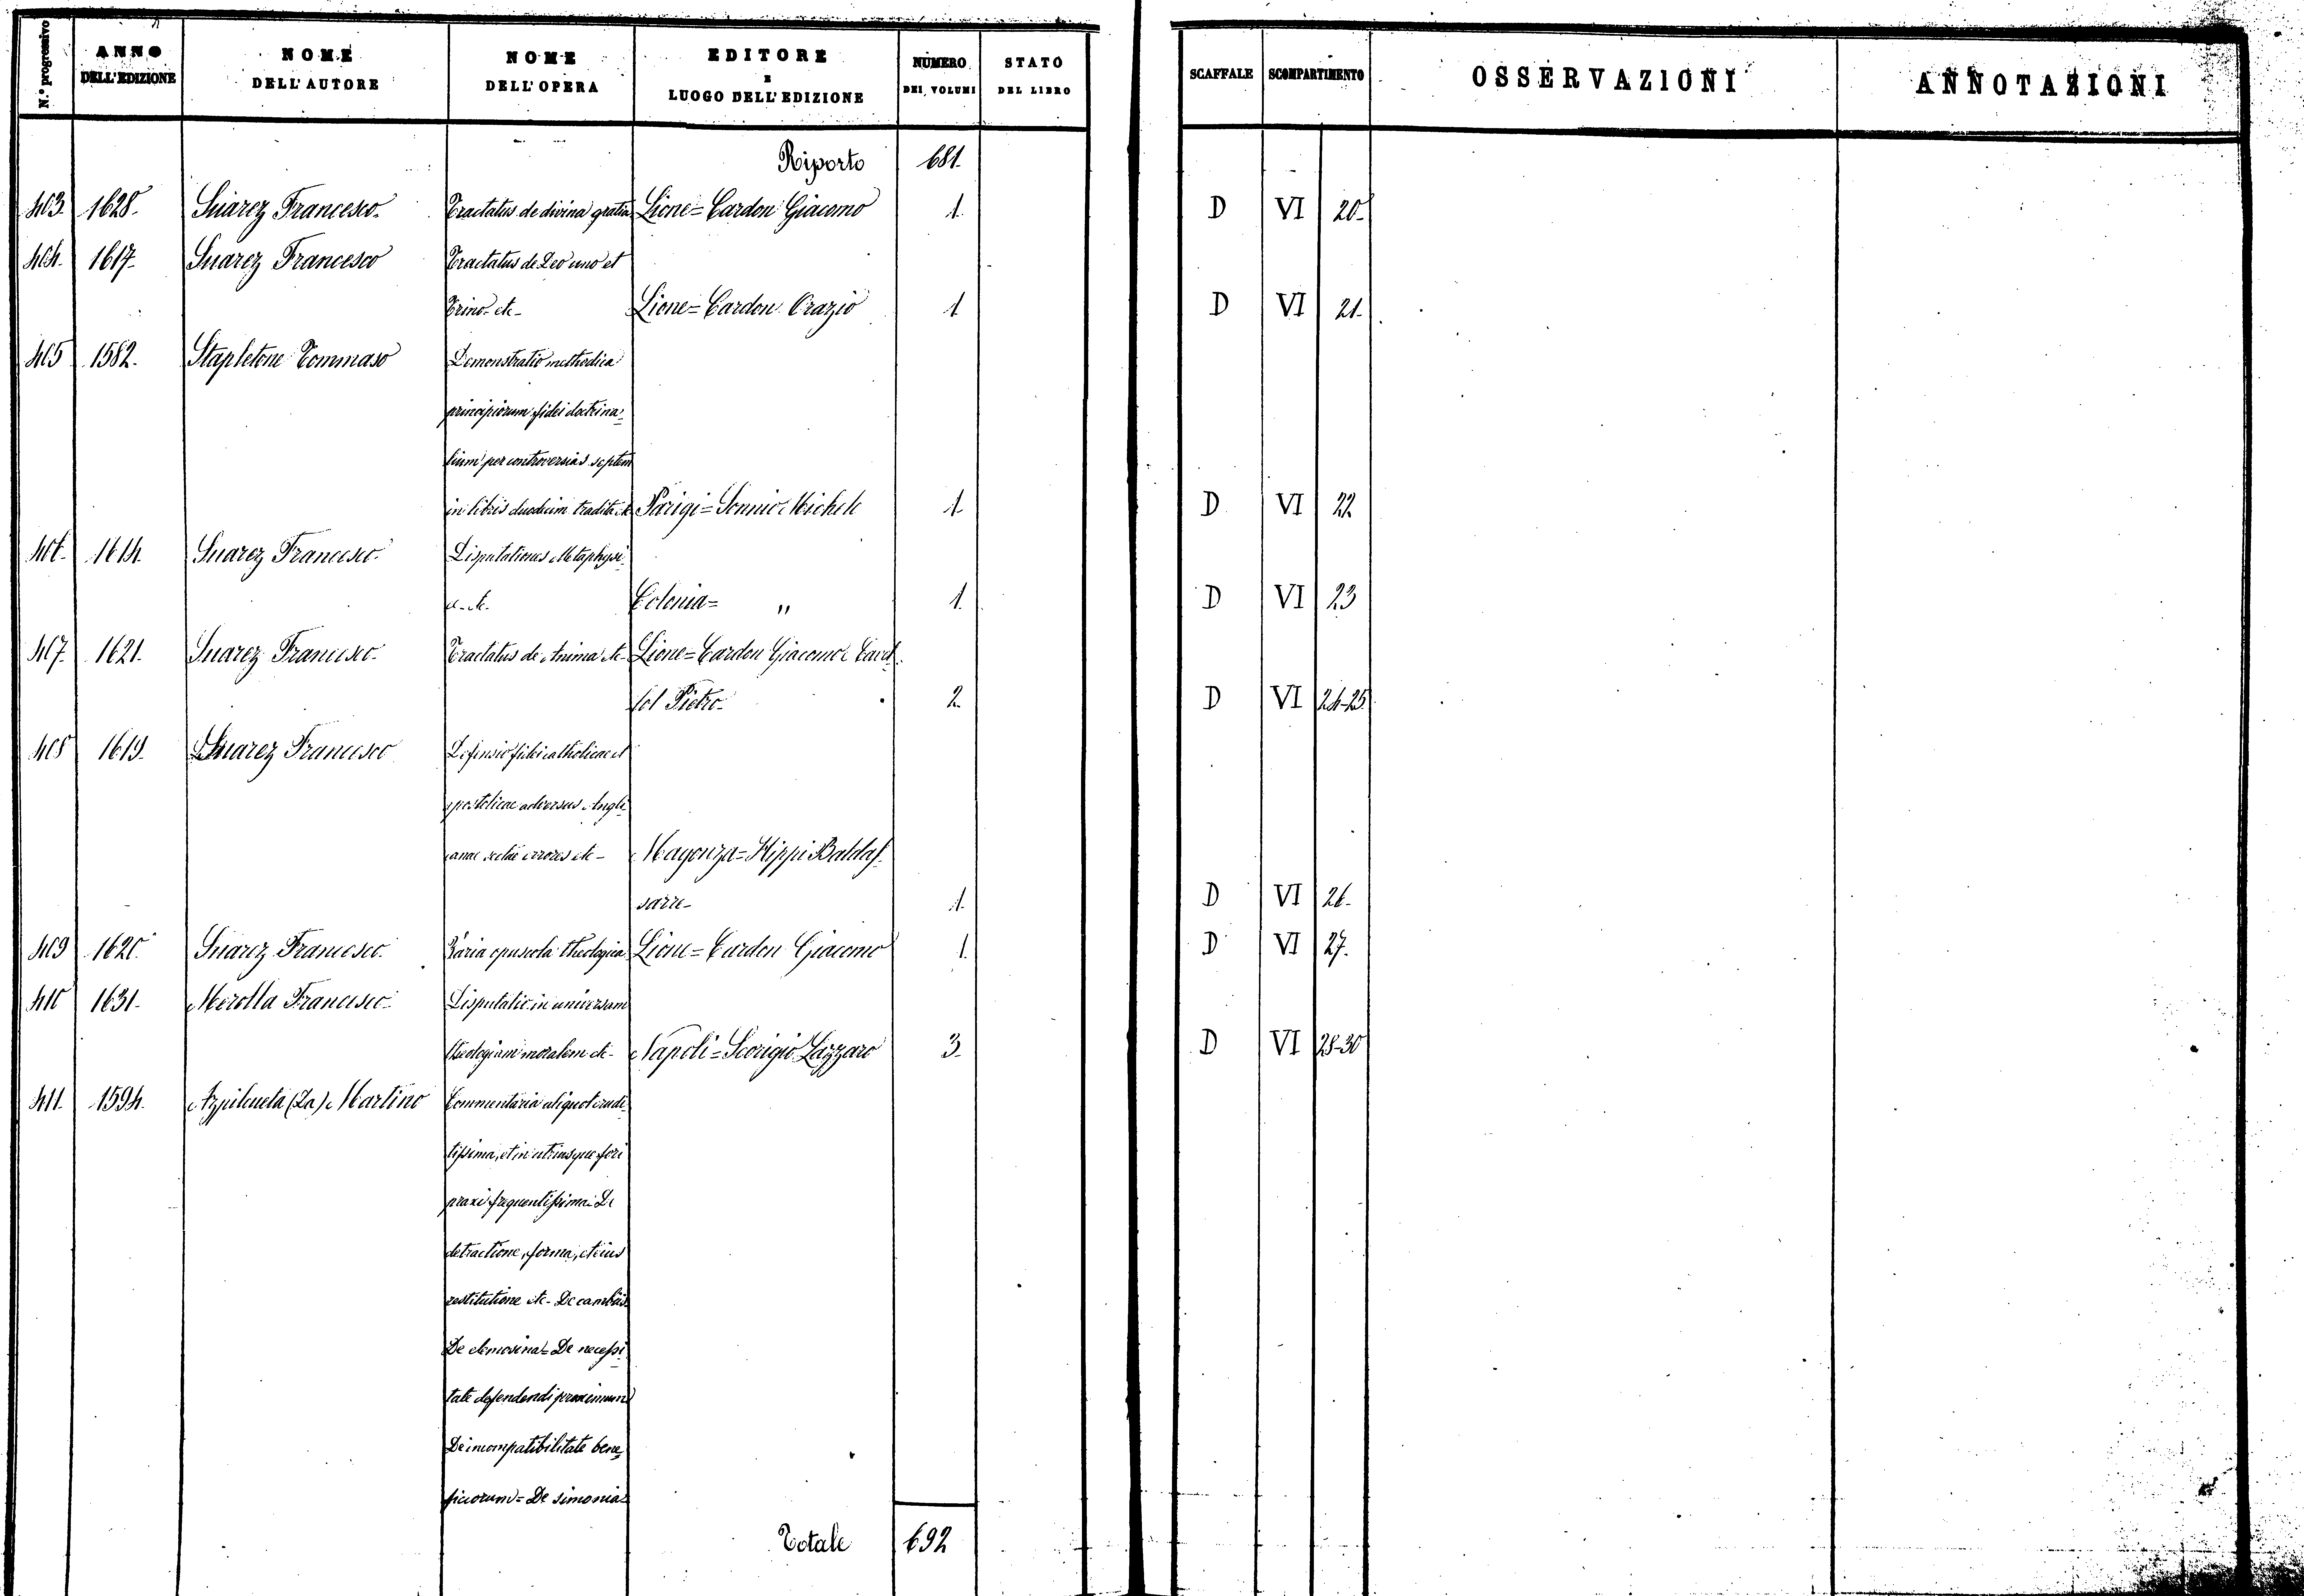 N.° progressivo
ANNO DELL'EDIZIONE
NOME DELL'AUTORE
NOME DELL'OPERA
EDITORE E LUOGO DELL'EDIZIONE
NUMERO DEI VOLUMI
STATO DEL LIBRO
SCAFFALE
SCOMPARTIMENTO
OSSERVAZIONI
ANNOTAZIONI
Riporto 681.
403. 1628. Suarez Francesco. Tractatus de divina gratia Lione = Cardon Giacomo 1. D VI 20.
404. 1617. Suarez Francesco Tractatus de Deo uno et
Trino etc - Lione = Cardon Orazio 1 D VI 21.
405 1582. Stapletone Tommaso Demonstratio methodica
principiorum fidei doctrina-
lium per controversias septem
in libris duodecim tradita etc Parigi = Sonnio Michele 1. D VI 22
406. 1614. Suarez Francesco. Disputationes Metaphysi-
Colonia = " 1. D VI 23
407. 1621. Suarez Francesco. Tractatus de Anima etc - Lione = Cardon Giacomo e
Pietro. 2. D VI 24-25
408 1619. Suarez Francesco Defensio fidei catholicae et
apostolicae adversus Angli-
canae sectae errores etc - Magonza = Hippi Baldas-
sarre - 1. D VI 26.
409 1620. Suarez Francesco. Varia opuscola theologica Lione = Cardon Giacomo 1. D VI 27.
410 1631. Merolla Francesco. Disputatio in universam
theologiam moralem etc - Napoli = Scorigio Lazzaro 3. D VI 28-30
411. 1594. Azpilcueta (Da) Martino Commentaria aliquot erudi-
tissima, et in utriusque fori
praxi frequentissima: De
detractione, forma, et eius
restitutione etc - De cambiis
De elemosina = De necessi-
tate defendendi proximum
De incompatibilitate bene-
ficiorum = De simonia
Totale 692